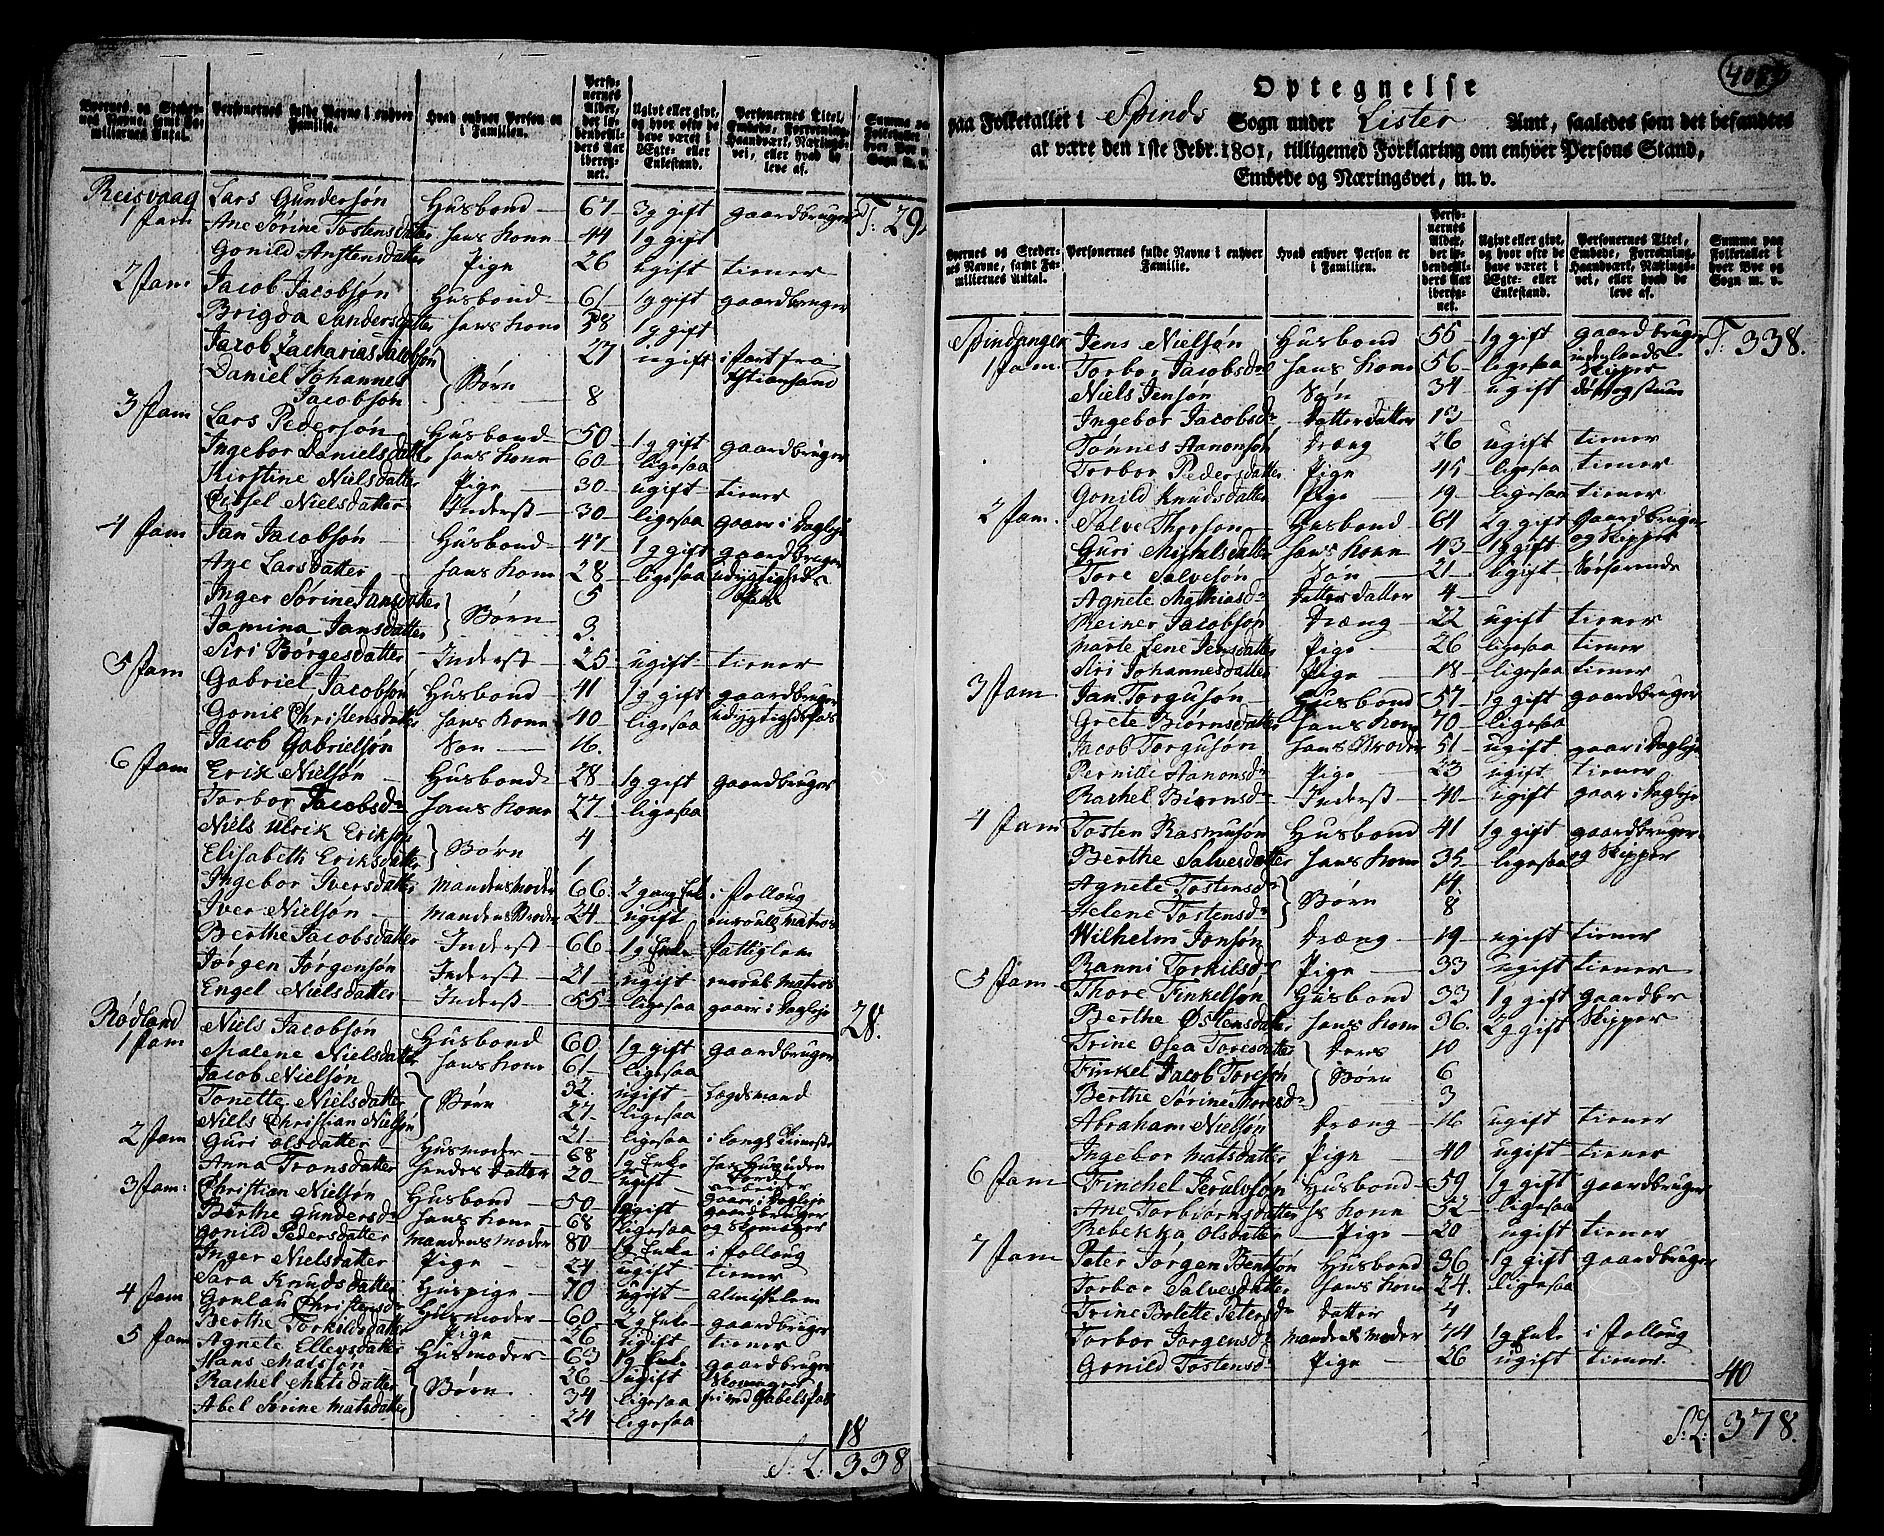 Byernes og Stedernes Navne, samt Familiernes Antal. | Personernes fulde Navne i enhver Familie. | Hvad enhver Person er i Familien. | Personernes Alder, det løbendeAlders Aar iberegnet. | Ugivt eller givt, og hvor ofte de have været i Ægte- eller Enkestand. | Personernes Titel, Embede, Forretning, Haandværk, Næringsvei, eller hvad de leve af. | Summa paa Folketallet i hver Bye og Sogn m. v.
Reisvaag
1 fam Lars Gundersøn Husbond 67 3g gift gaardbruger T: 29
Ane Sørine Tostensdatter hans Kone 44 1g gift
Gonild Anstensdatter Pige 26 ugift tiener
2 fam Jacob Jacobsøn Husbond 61 1g gift gaardbruger
Brigda Sandersdatter hans Kone 58 1g gift
Jacob Zacharias Jacobsøn } Børn 27 ugift i fart fra
Daniel Johannes Jacobsøn 8 Christiansand
3 fam Lars Pedersøn Husbond 50 1g gift gaardbruger
Ingebor Danielsdatter hans Kone 60 ligesaa
Kirstine Nielsdatter Pige 30 ugift tiener
Cidsel Nielsdatter Inderst 30 ligesaa gaar i Dagleje
4 fam Jan Jacobsøn Husbond 47 1g gift gaardbruger
Ane Larsdatter hans Kone 28 ligesaa udygtigheds Pas
Inger Sørine Jansdatter } Børn 5
Jamina Jansdatter 3
Siri Børgesdatter Inderst 25 ugift tiener
5 fam Gabriel Jacobsøn Husbond 41 1g gift gaardbruger
Gonil Christensdatter hans Kone 40 ligesaa udygtighdspas
Jacob Gabrielsøn Søn 16
6 fam Erik Nielsøn Husbond 28 1g gift gaardbruger
Torbor Jacobsdr hans Kone 27 ligesaa
Niels Ulrik Eriksøn } Børn 4
Elisabeth Eriksdatter 1
Ingebor Iversdatter Mandens Moder 66 2 gang Enke i folloug
Iver Nielsøn Mandens Broder 24 ugift enroul: Matros
Berthe Jacobsdatter Inderst 66 1g Enke fattiglem
Jørgen Jørgensøn Inderst 21 ugift enroul: Matros
Engel Nielsdatter Inderst 55 ligesaa gaar i Dagleje
Rødland
1 fam Niels Jacobsøn Husbond 60 1g gift gaardbruger 28
Malene Nielsdatter hans Kone 61 ligesaa
Jacob Nielsøn } Børn 32 ugift Lægdsmand
Tonette Nielsdatter 27 ligesaa
Niels Christian Nielsøn 21 ligesaa i Kongl: tieneste
2 fam Guri Olsdatter Husmoder 68 1g Enke har Huus uden Jord
Anna Tronsdatter hendes Datter 20 ugift arbeider
3 fam: Christian Nielsøn Husbond 50 1g gift gaardbruger
Berthe Gundersdr hans Kone 68 ligesaa og Skomager
Gonild Pedersdatter Mandens Moder 80 1g Enke i folloug
Inger Nielsdatter Pige 24 ugift tiener
Sara Knudsdatter Huspige 70 ugift almisselem
4 fam Gonlau Christensdr Husmoder 60 2g Enke gaardbruger
Berthe Torkilsdatter Pige 26 ugift tiener
5 fam Agnete Ellevsdatter Husmoder 63 1g Enke gaardbruger
Hans Matssøn } Børn 26 ugift Skomager
Rachel Matsdatter 34 ligesaa
Abel Sørine Matsdatter 24 ligesaa
18
S: L: 338
4054
Optegnelse
paa Folketallet i Spinds Sogn under Lister Amt, saaledes som det befandtes
at være den 1ste Febr. 1801, tilligemed Forklaring om enhver Persons Stand,
Embede og Næringsvei, m. v.
Byernes og Stedernes Navne, samt Familiernes Antal. | Personernes fulde Navne i enhver Familie. | Hvad enhver Person er i Familien. | Personernes Alder, det løbende Alders Aar iberegnet. | Ugivt eller givt, og hvor ofte de have været i Ægte- eller Enkestand. | Personernes Titel, Embede, Forretning, Haandværk, Næringsvei, eller hvad de leve af. | Summa paa Folketallet i hver Bye og Sogn m. v.
Spindsanger Jens Nielsøn Husbond 55 1g gift gaardbruger T: 338.
1 fam Torbor Jacobsdr hans Kone 56 ligesaa indenlands Skipper
Niels Jensøn Søn 34 ugift
Ingebor Jacobsdr Datterdatter 13
Tønnes Aanonsøn Dræng 26 ugift tiener
Torbor Pedersdatter Pige 45 ligesaa tiener
Gonild Knudsdatter Pige 19 ligesaa tiener
2 fam. Salve Thorsøn Husbond 64 2g gift Gaardbruger
Guri Mikelsdatter hans Kone 43 1g gift og Skipper
Tore Salvesøn Søn 21 ugift Søefarende
Agnete Mathiasdr Datters datter 4
Reiner Jacobsøn Dræng 22 ugift tiener
Marte Lene Jensdatter Pige 26 ligesaa tiener
Siri Johannesdatter Pige 18 ligesaa tiener
3 fam Jan Torgusøn Husbond 57 1g gift gaardbruger
Grete Biørnsdatter hans Kone 70 ligesaa
Jacob Torgusøn hans Broder 51 ugift gaar i Dagleje
Pernille Aanonsdr Pige 23 ugift tiener
Rachel Biørnsdr Inderst 40 ugift gaar i Dagleje
4 fam Tosten Rasmusøn Husbond 41 1g gift gaardbruger
Berthe Salvesdatter hans Kone 35 ligesaa og Skipper
Agnete Tostensdr } Børn 14
Helene Tostensdr 8
Wilhelm Jonsøn Dræng 19 ugift tiener
Ranni Torkilsdr Pige 33 ugift tiener
5 fam Thore Finkelsøn Husbond 33 1g gift gaardbr
Berthe Østensdatter hans Kone 36 2g gift Skipper
Trine Osea Toresdatter } Deres 10
Finkel Jacob Toresøn Børn 6
Berthe Sørine Thoresdr 3
Abraham Nielsøn Dræng 16 ugift tiener
Ingebor Matsdatter Pige 40 ugift tiener
6 fam Finchel Jeralvsøn Husbond 59 1g gift gaardbruger
Ane Torbiørnsdatter hs Kone 52 ligesaa
Rebekka Olsdatter Pige 20 ugift tiener
7 fam Peter Jørgen Bentsøn Husbond 36 1g gift gaardbruger
Torbor Salvesdatter hans Kone 24 ligesaa
Trine Bolette Petersdr Datter 4
Torbor Jørgensdr Mandens Moder 74 1g Enke i folloug
Gonild Tostensdr Pige 26 ugift tiener.
40
S: L: 378.